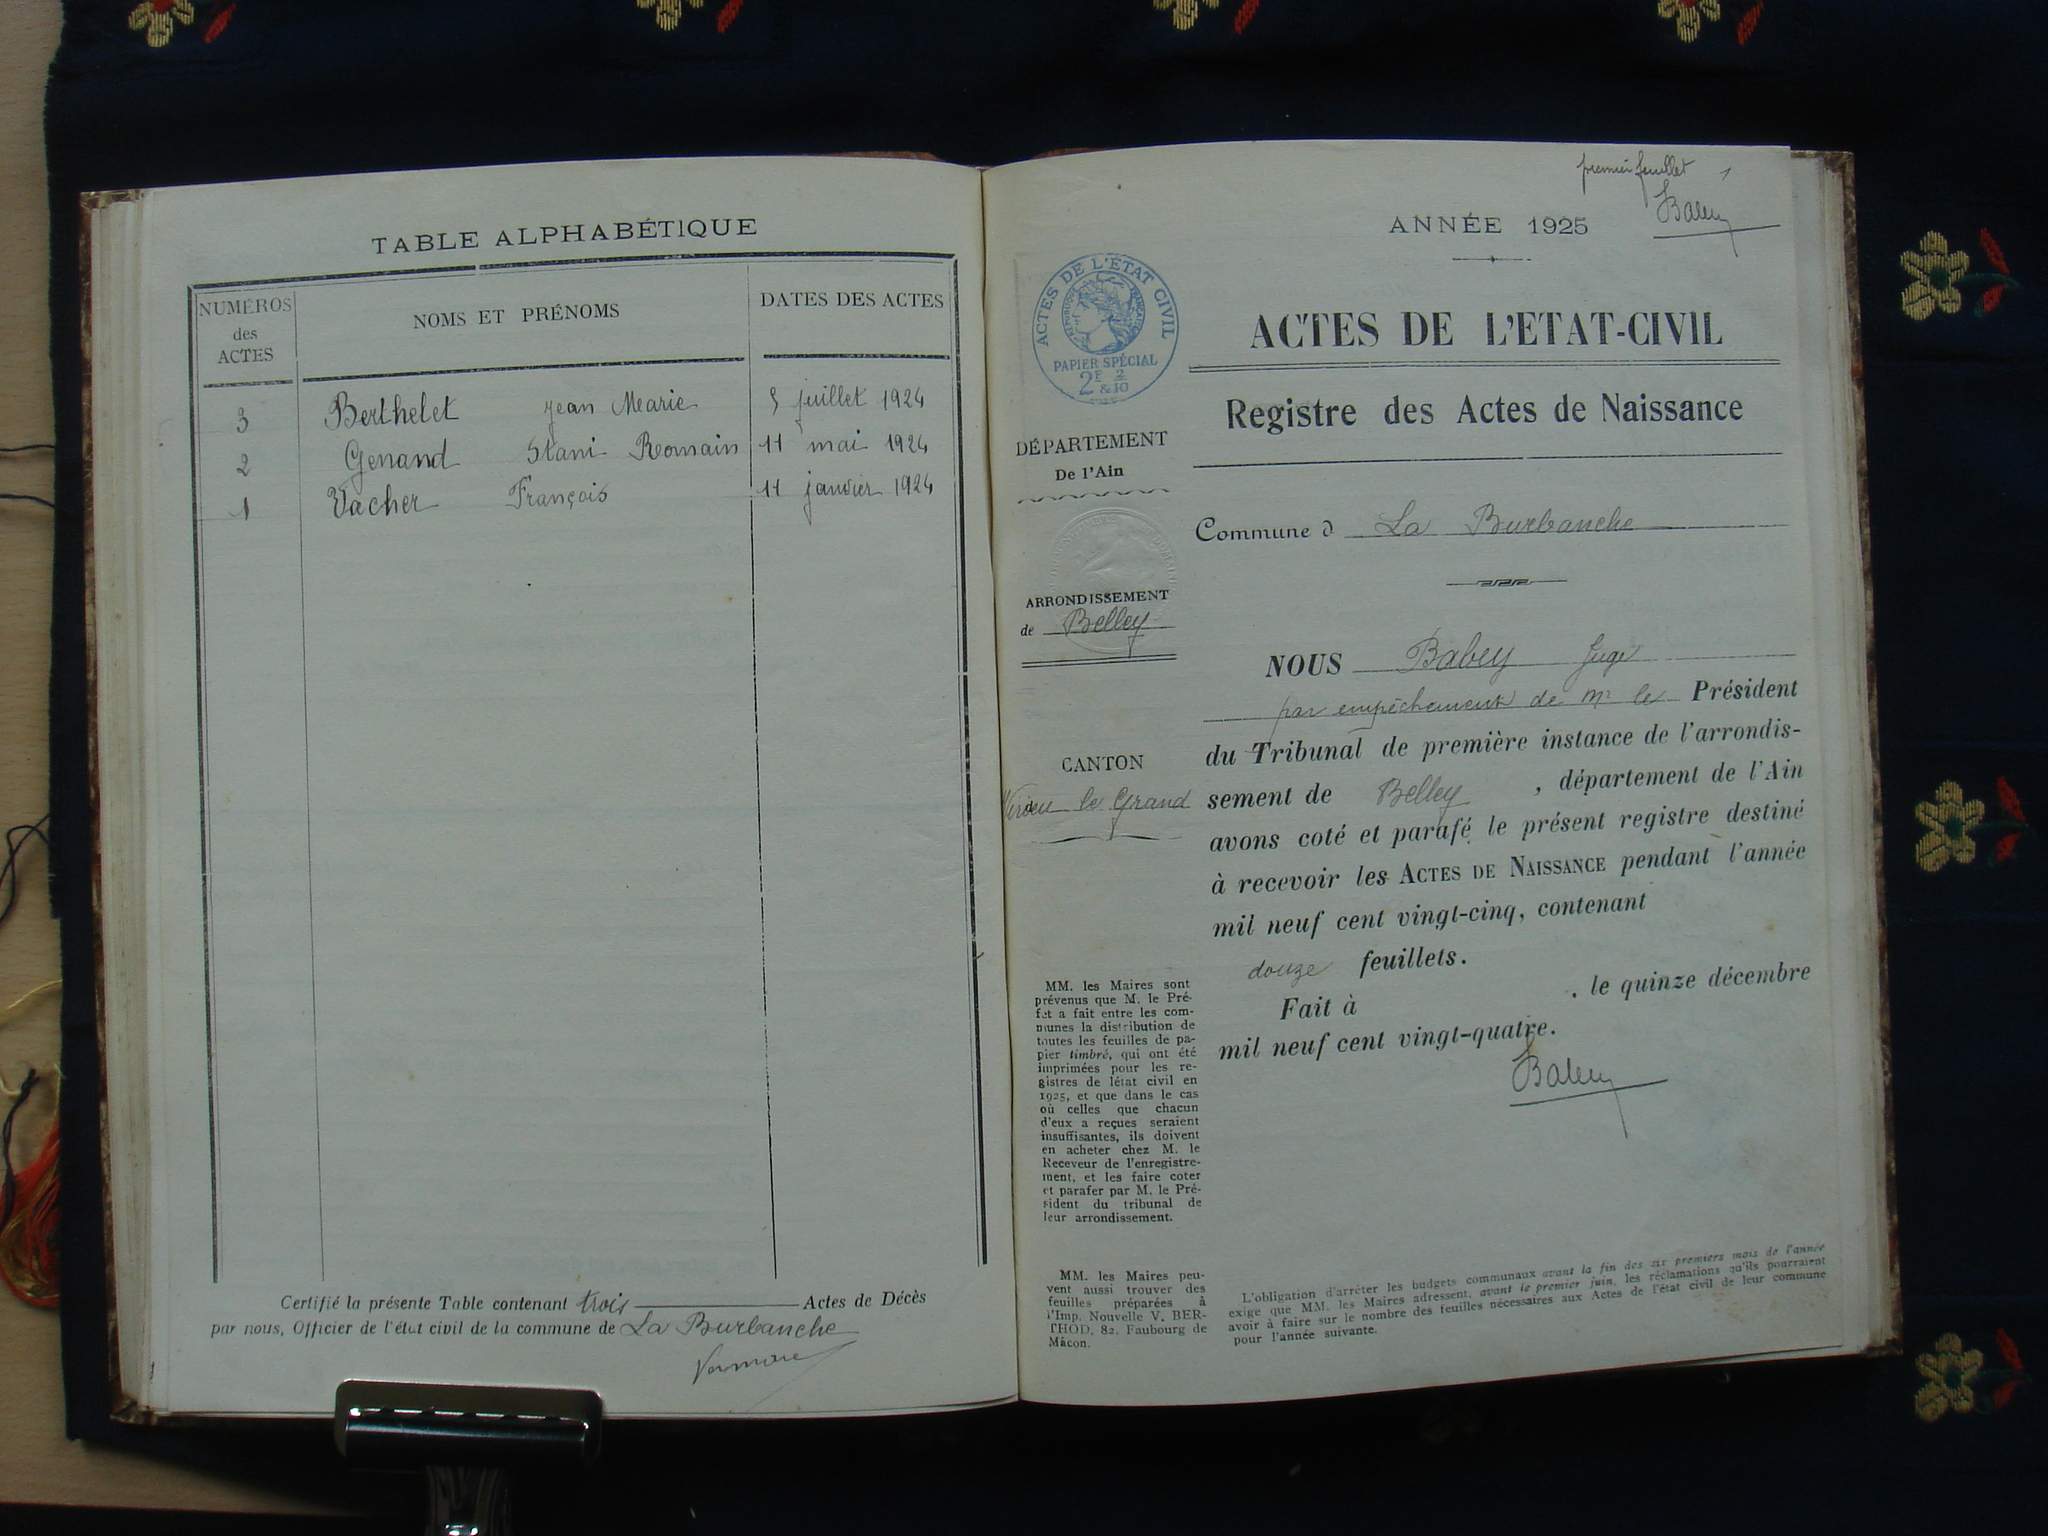 TABLE ALPHABÉTIQUE
NUMÉROS
des
ACTES
NOMS ET PRÉNOMS
DATES DES ACTES
3 Berthelet Jean Marie 5 juillet 1924
2 Genand Stani Romain 11 mai 1924
1 Vacher François 11 janvier 1924
Certifié la présente Table contenant trois Actes de Décès
par nous, Officier de l'état civil de la commune de La Burbanche
premier feuillet 1
Babey
ANNÉE 1925
ACTES DE L'ÉTAT CIVIL
RÉPUBLIQUE FRANÇAISE
PAPIER SPÉCIAL
2F 2
& 10
ACTES DE L'ETAT-CIVIL
Registre des Actes de Naissance
DÉPARTEMENT
De l'Ain
Commune d La Burbanche
ARRONDISSEMENT
de Belley
CANTON
Virieu le Grand
NOUS Babey Juge
par empêchement de Mr le Président
du Tribunal de première instance de l'arrondis-
sement de Belley , département de l'Ain
avons coté et parafé le présent registre destiné
à recevoir les ACTES DE NAISSANCE pendant l'année
mil neuf cent vingt-cinq, contenant
douze feuillets.
Fait à , le quinze décembre
mil neuf cent vingt-quatre.
Babey
MM. les Maires sont
prévenus que M. le Pré-
fet a fait entre les com-
munes la distribution de
toutes les feuilles de pa-
pier timbré, qui ont été
imprimées pour les re-
gistres de létat civil en
1925, et que dans le cas
où celles que chacun
d'eux a reçues seraient
insuffisantes, ils doivent
en acheter chez M. le
Receveur de l'enregistre-
ment, et les faire coter
et parafer par M. le Pré-
sident du tribunal de
leur arrondissement.
MM. les Maires peu-
vent aussi trouver des
feuilles préparées à
l'Imp. Nouvelle V. BER-
THOD, 82, Faubourg de
Mâcon.
L'obligation d'arrêter les budgets communaux avant la fin des six premiers mois de l'année
exige que MM. les Maires adressent, avant le premier juin, les réclamations qu'ils pourraient
avoir à faire sur le nombre des feuilles nécessaires aux Actes de l'état civil de leur commune
pour l'année suivante.